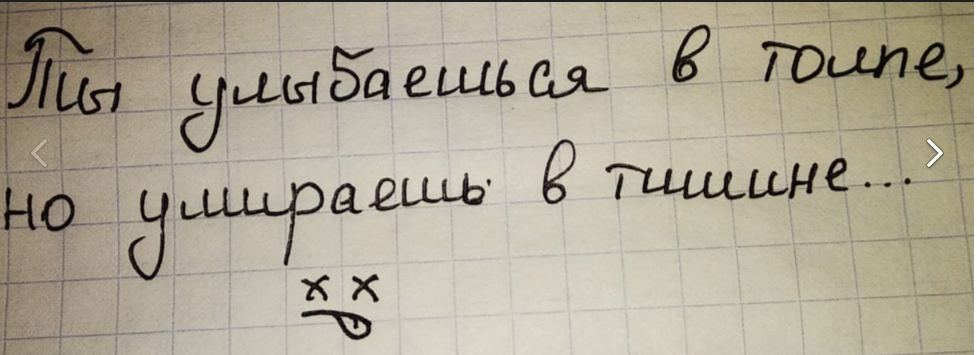 Ты улыбаешься в толпе,
но умираешь в тишине...
х х